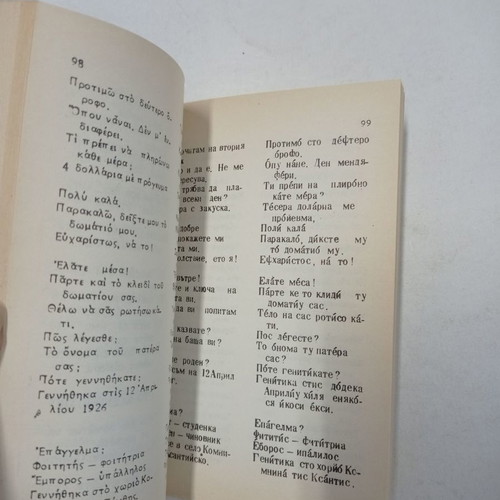 98
Προτιμῶ στὸ δεύτερο ὄ-
ροφο.
Ὅπου νἆναι. Δὲν μ'
διαφέρει.
Τί πρέπει νὰ πληρώνω
κάθε μέρα;
4 δολλάρια μὲ πρόγευμα
Πολὺ καλά.
Παρακαλῶ, δεῖξτε μου τὸ
δωμάτιό μου.
Εὐχαρίστως, νὰ το!
Ἐλᾶτε μέσα!
Πάρτε καὶ τὸ κλειδὶ τοῦ
δωματίου σας.
Θέλω νὰ σᾶς ρωτήσω κά-
τι.
Πῶς λέγεσθε;
Τὸ ὄνομα τοῦ πατέρα
σας;
Πότε γεννηθήκατε;
Γεννήθηκα στὶς 12 Ἀπρι-
λίου 1926
Ἐπάγγελμα;
Φοιτητὴς – φοιτήτρια
Ἔμπορος – ὑπάλληλος
Γεννήθηκα στὸ χωριὸ Κο-
99
на втория
и да е. Не ме
трябва да пла-
всеки ден?
с закуска.
добре
покажете ми
ми.
ето я!
вътре!
и ключа на
ви.
да ви попитам
казвате?
на баща ви?
роден?
съм на 12 Април
– студенка
– чиновник
в село Комни-
Протимо́ сто де́фтеро
о́рофо.
О́пу на́не. Ден мендя-
фе́ри.
Ти пре́пи на плиро́но
ка́те ме́ра?
Те́сера дола́рна ме
про́йевма,
Поли́ кала́
Паракало́, ди́ксте му
то дома́тио́ му.
Ефхари́стос, на́ то!
Ела́те ме́са!
Па́рте ке то клиди́ ту
домати́у сас.
Те́ло на сас роти́со ка́-
ти.
Пос ле́гесте?
То о́нома ту пате́ра
сас?
Гени́тика стис до́дека
Апри́лиу хи́ля еняко́-
ся и́коси е́кси.
Епа́гелма?
Фитити́с – фити́трия
Е́борос – ипа́лилос
Гени́тика сто хорио́ Ко-
мнина́ тис Кса́нтис.